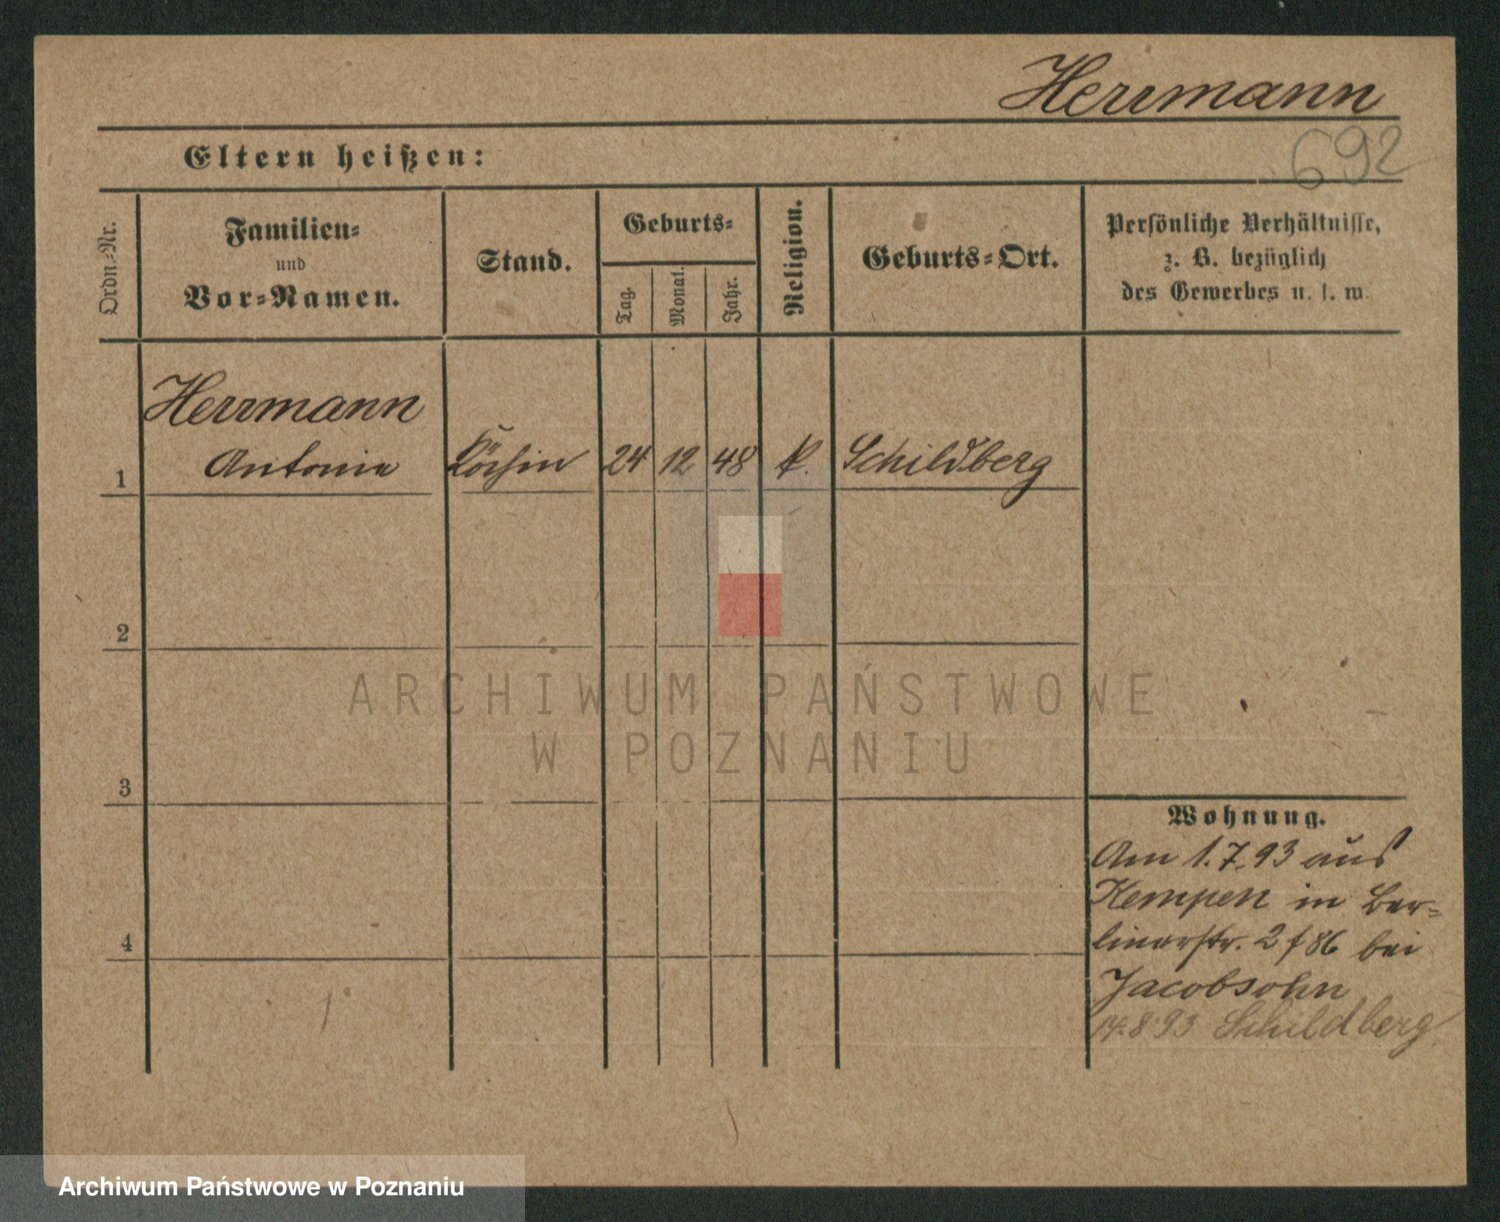 Herrmann
692
Eltern heißen:
Ordn.-Nr.
Familien-
und
Vor-Namen.
Stand.
Geburts-
Tag.
Monat.
Jahr.
Religion.
Geburts-Ort.
Persönliche Verhältnisse,
z. B. bezüglich
des Gewerbes u. s. w.
Herrmann
1 Antonie Köchin 24 12 48 k. Schildberg
2
3
4
Wohnung.
Am 1.7.93 aus
Kempen in Ber-
linerstr. 2 f 86 bei
Jacobsohn
14.8.93 Schildberg
ARCHIWUM PAŃSTWOWE
W POZNANIU
Archiwum Państwowe w Poznaniu